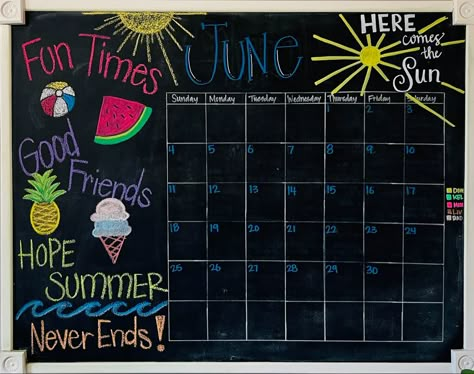 Fun Times
June
HERE
comes
the
Sun
Good
Friends
HOPE
SUMMER
Never Ends!
Sunday Monday Tuesday Wednesday Thursday Friday Saturday
1 2 3
4 5 6 7 8 9 10
11 12 13 14 15 16 17
18 19 20 21 22 23 24
25 26 27 28 29 30